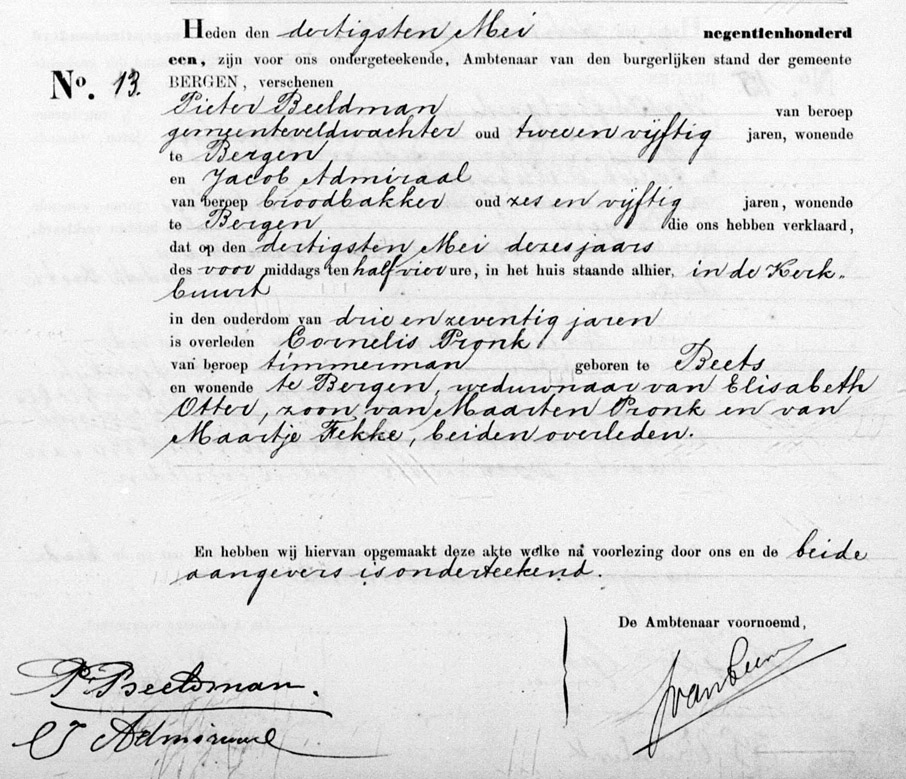 Heden den dertigsten Mei negentienhonderd
een, zijn voor ons ondergeteekende, Ambtenaar van den burgerlijken stand der gemeente
No. 13. BERGEN, verschenen
Pieter Beeldman van beroep
gemeenteveldwachter oud twee en vijftig jaren, wonende
te Bergen
en Jacob Admiraal
van beroep broodbakker oud zes en vijftig jaren, wonende
te Bergen die ons hebben verklaard,
dat op den dertigsten Mei dezes jaars
des voor middags ten half vier ure, in het huis staande alhier, in de Kerk-
buurt
in den ouderdom van drie en zeventig jaren
is overleden Cornelis Pronk,
van beroep timmerman geboren te Beets
en wonende te Bergen, weduwnaar van Elisabeth
Otter, zoon van Maarten Pronk en van
Maartje Fekke, beiden overleden.
En hebben wij hiervan opgemaakt deze akte welke na voorlezing door ons en de beide
aangevers is onderteekend.
De Ambtenaar voornoemd,
P. Beeldman.
J Admiraal